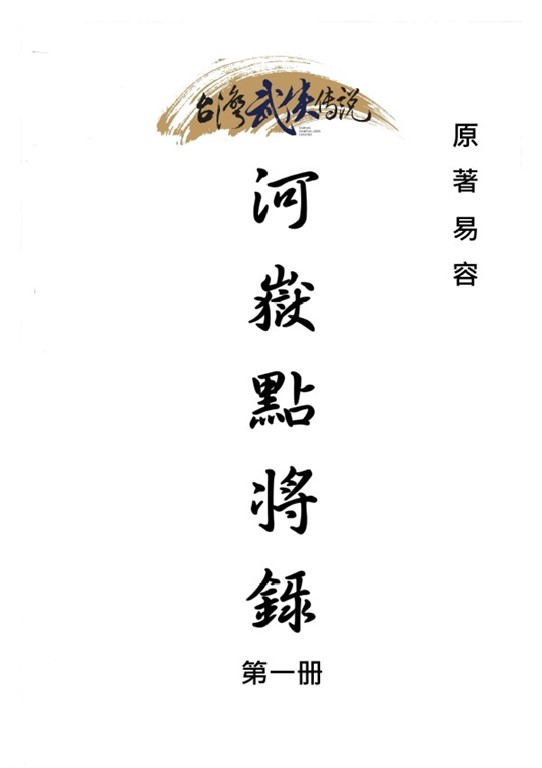 台灣武俠传説
原著易容
河嶽點將錄
第一册